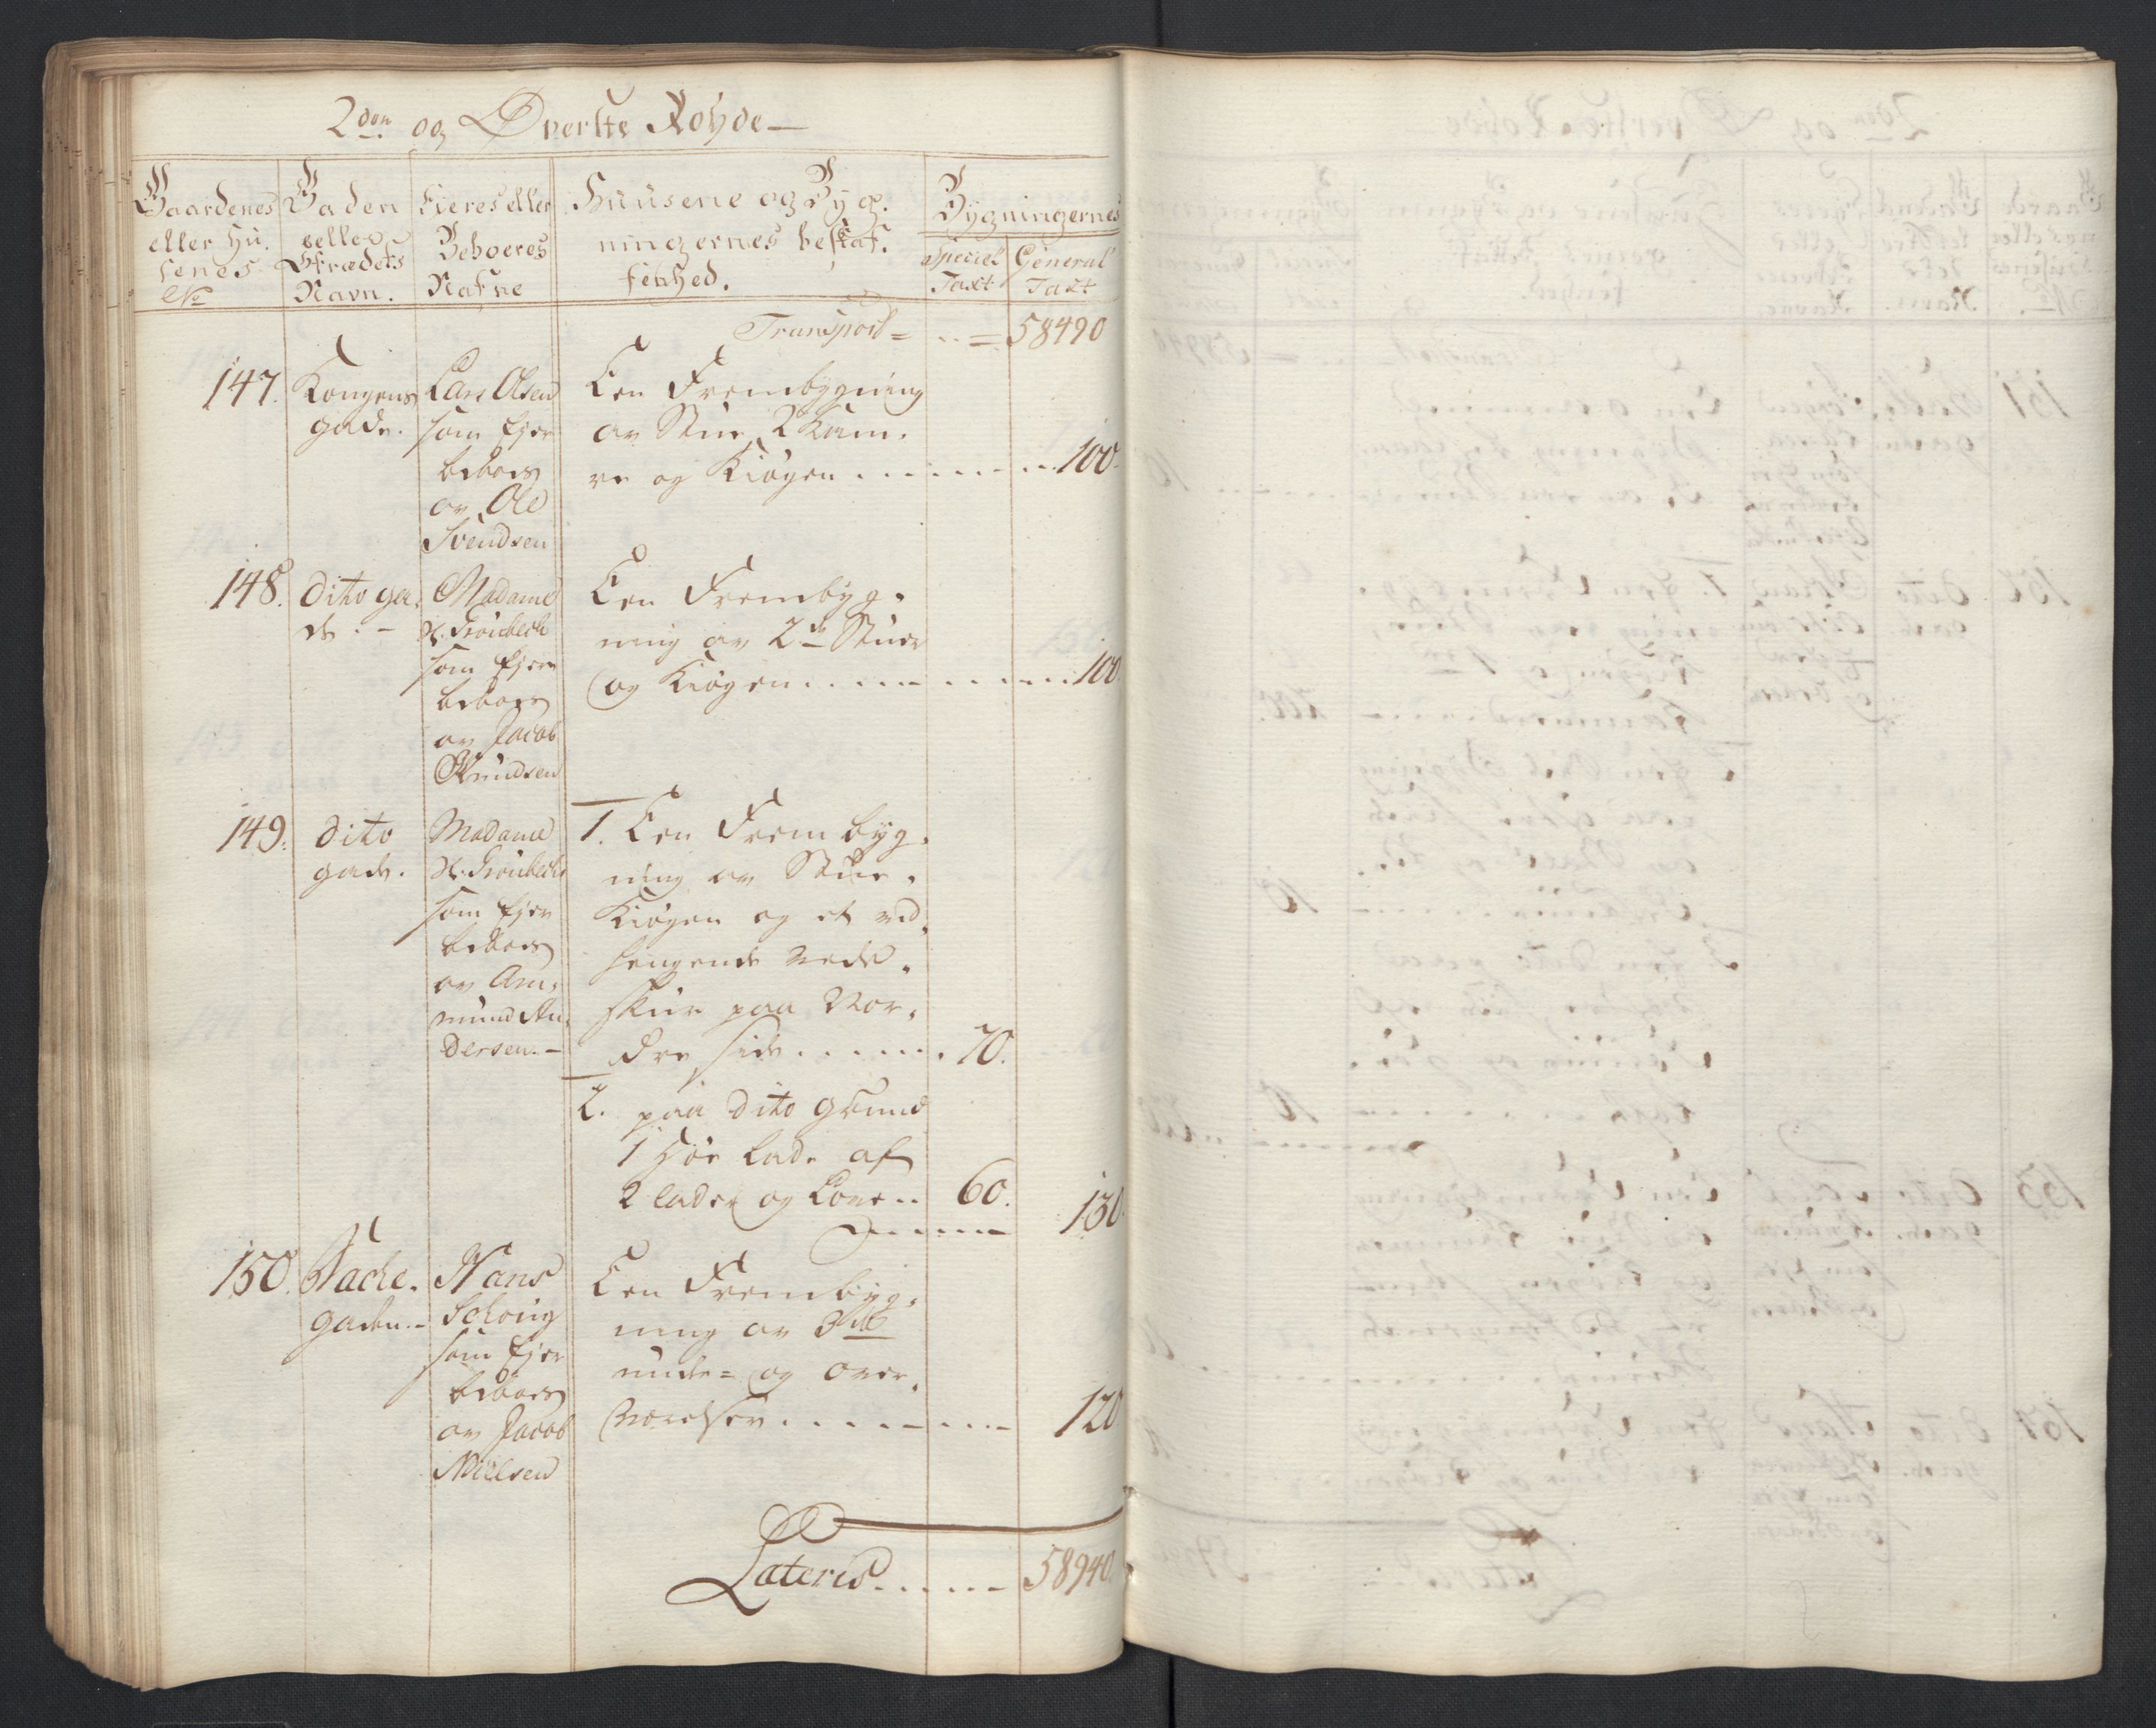 2den og Øverste Rohde
Gaardenes
eller Hu
senes
No
Gaden
eller
Strædets
Navn.
Eieres eller
Beboeres
Nafne
Huusene og Byg.
ningernes beskaf.
fenhed.
Bygningernes
Speciel
Taxt
General
Taxt
Transport = .. = 58490
147. Kongens
gade.
Lars Olsen
som Ejer
beboes
av Ole
Svendsen
Een Frembygning
av Stue 2 Kam.
re og Kiøgen . . . . . 100.
148. dito ga.
de. -
Madame
som Ejer
beboes
av Jacob
Knudsen
Een Frembyg.
ning av 2de Stuer
og Kiøgen . . . . . 100.
149. dito
gade.
Madame
som Ejer
beboes
av Am.
mund An.
dersen. -
1. Een Frembyg.
ning av Stue.
Kiøgen og et ved.
hengende Vede.
skur paa Nor.
dre side . . . . . 70.
2. paa dito grund
1 Høe lade af
2 lader og Love .. 60.
130.
150. Bache.
gaden. -
Hans
som Ejer
beboes
av Jacob
Nielsen
Een Frembyg.
ning av 3de
unde= og over.
Værelser . . . . . 120
Lateris . . . . . 58940.